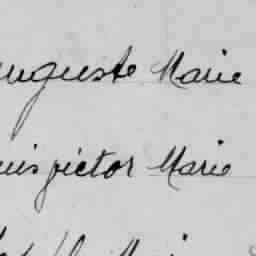 Auguste Marie
uis victor Marie